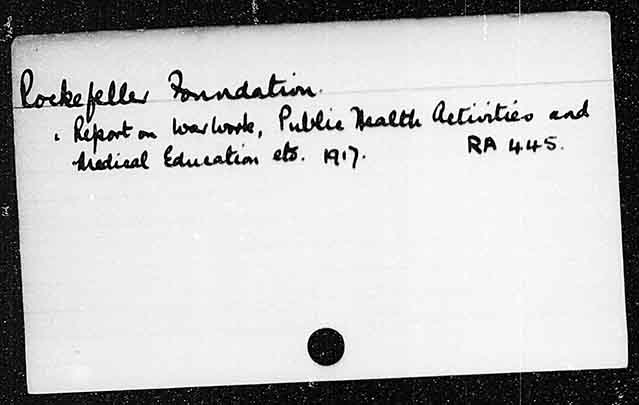 Rockefeller Foundation.
Report on War Work, Public Health Activities and
Medical Education etc. 1917. RA 445.